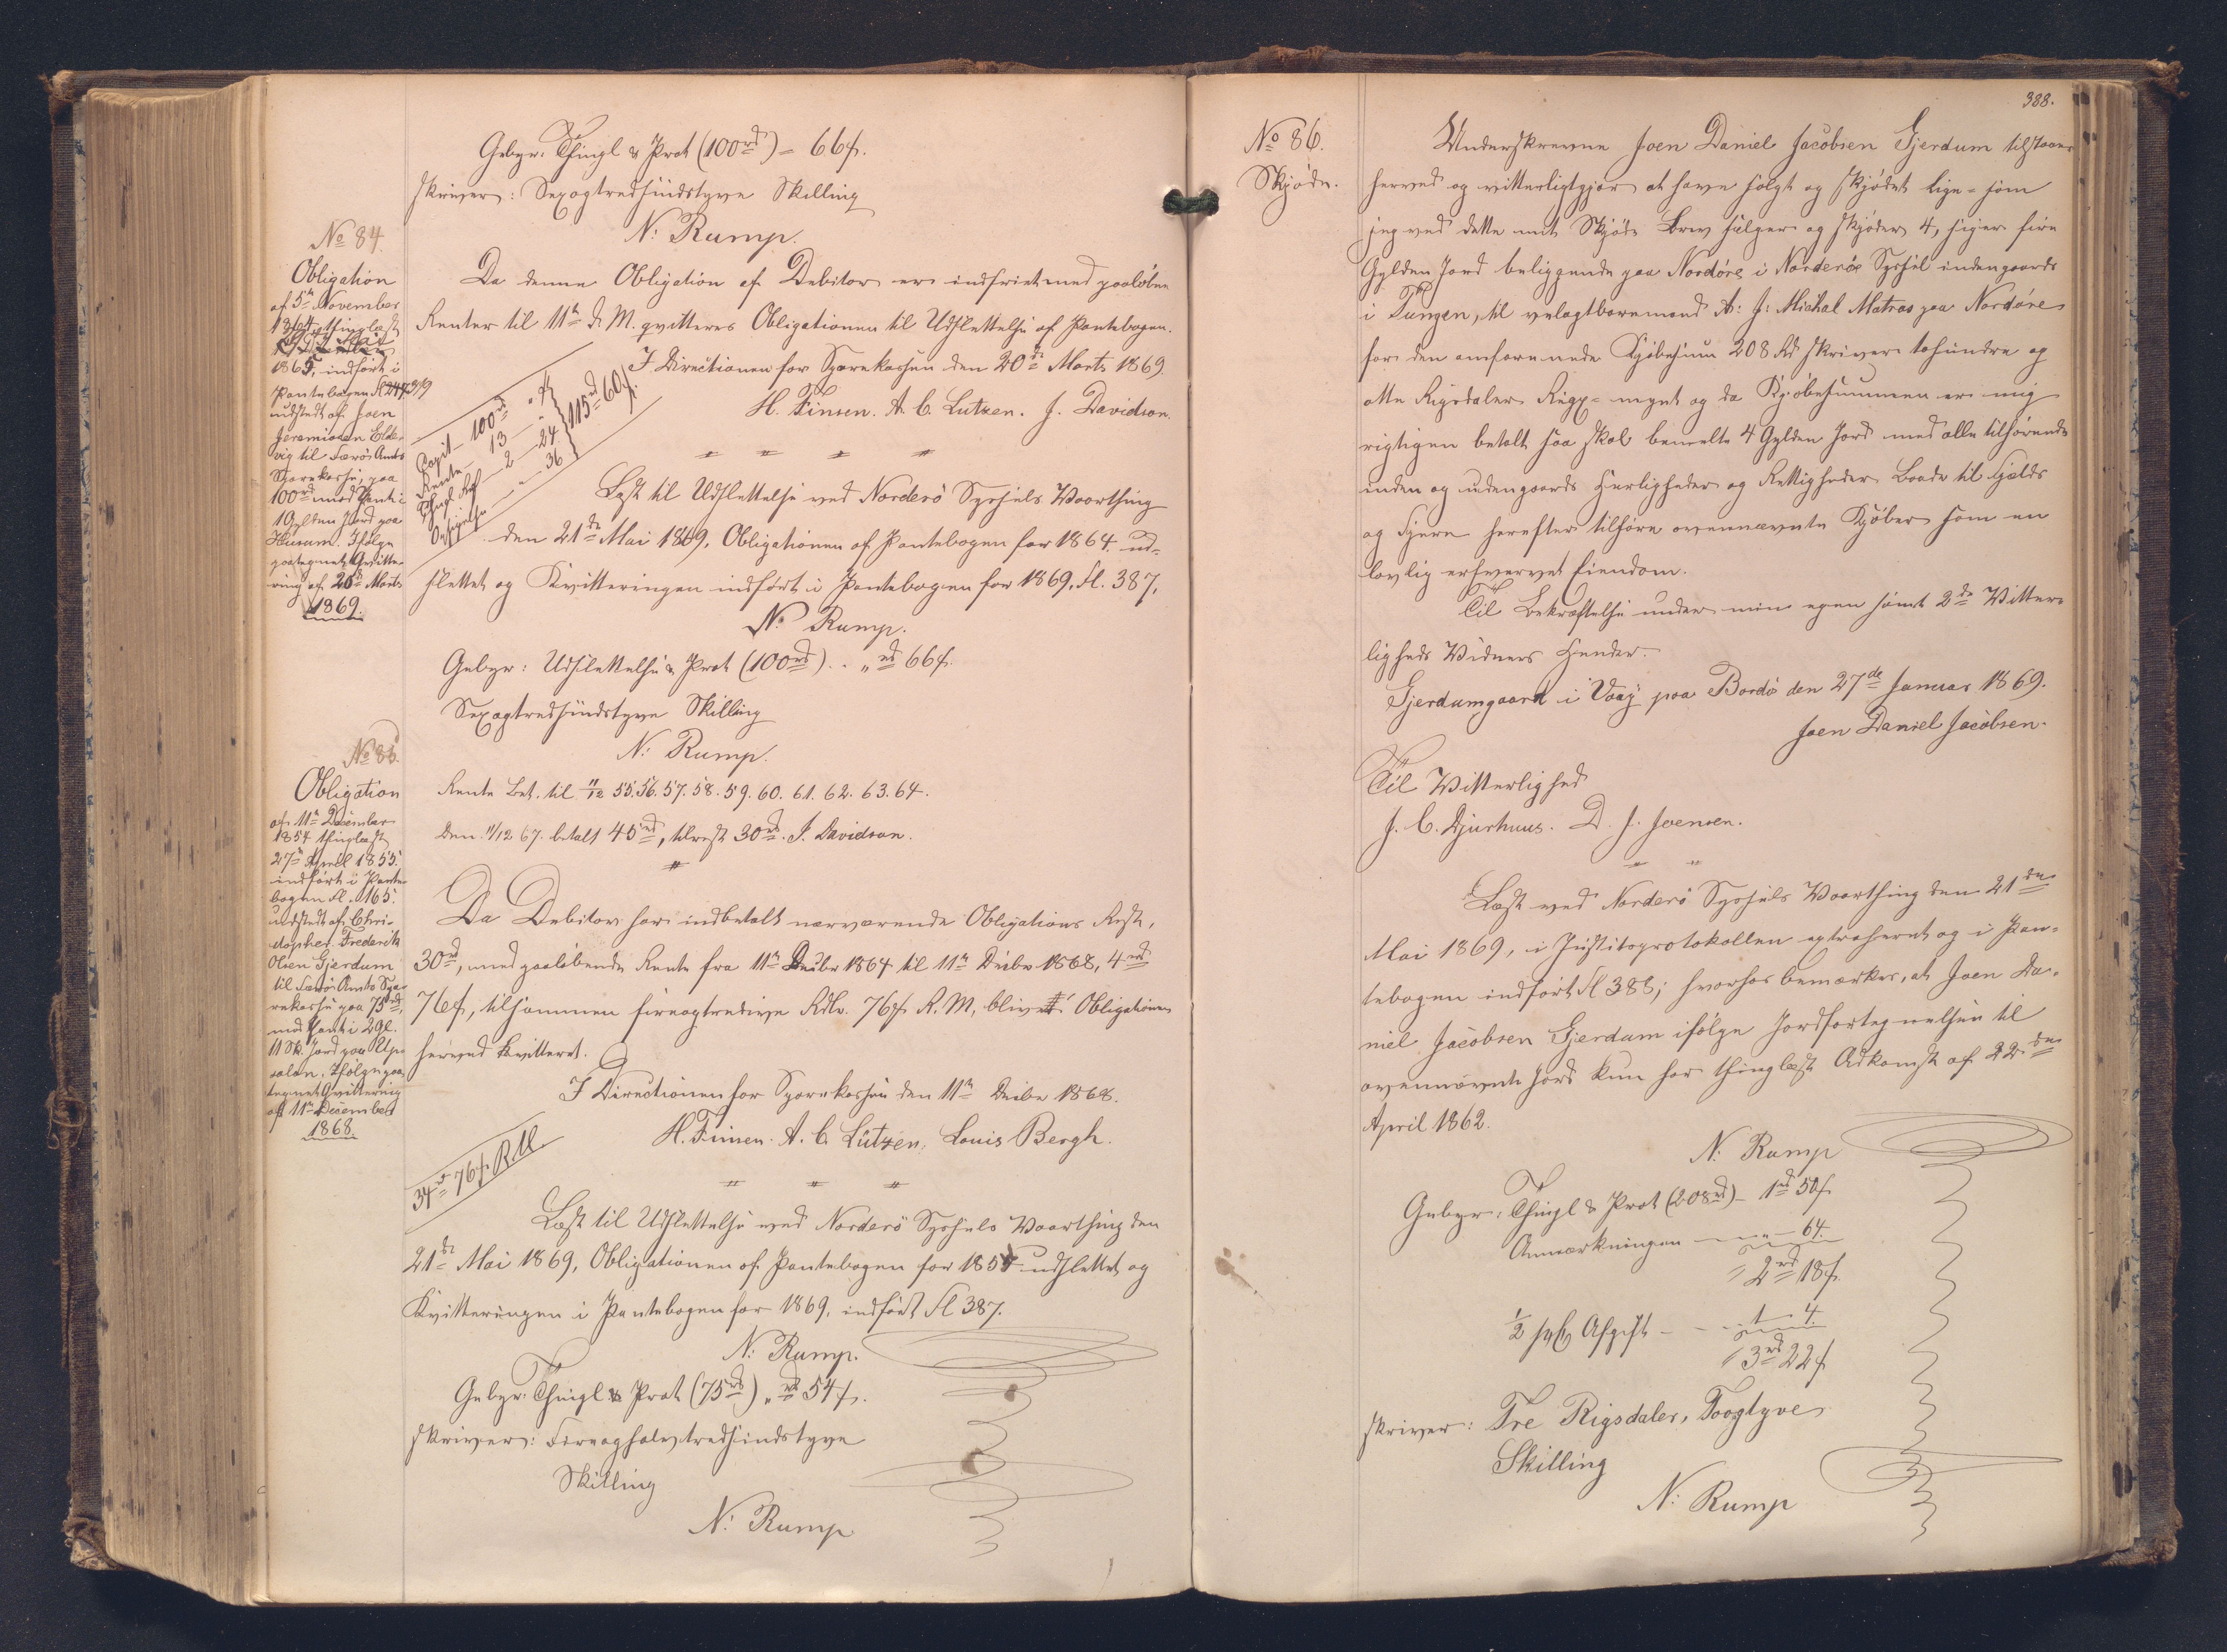 Gebyr: Thingl & Prot (100rd) = 66ß.
skriver: Sexogtredsindstyve Skilling
N: Rump.
No 84.
Obligation
af 5te November
1864, thinglæst
1865, indført i
Pantebogen Fl 319
udstedt af Joen
Jeremiasen Elde-
vig til Færø Amts
Sparekasse, paa
100rd mod Pant i
1 Gylden Jord paa
Husum. Ifølge
paategnet Qvitte-
ring af 20de Marts
1869.
Da denne Obligation af Debitor er indfriet med paaløbne
Renter til 11te d. M. qvitteres Obligationen til Udslettelse af Pantebogen.
I Directionen for Sparekassen den 20de Marts 1869.
H. Finsen. A. C. Lutzen. J. Davidson.
Capit 100rd „ ß
Rente 13 — „
2 — 24
„ — 36
115rd 60ß.
Læst til Udslettelse ved Norderø Syssels Vaarthing
den 21de Mai 1869, Obligationen af Pantebogen for 1864 ud-
slettet og Kvitteringen indført i Pantebogen for 1869, Fl. 387.
N: Rump.
Gebyr: Udslettelse & Prot (100rd) . . „rd 66ß.
Sexogtredsindstyve Skilling
N: Rump.
No 85.
Obligation
af 11te December
1854 thinglæst
27de April 1855.
indført i Pante-
bogen Fl. 165.
udstedt af Chri-
stopher Frederik
Olsen Gjerdum
til Færø Amts Spa-
rekasse paa 75rd,
mod Pant i 2 Gl.
11 Sk. Jord paa Up-
salen. Ifølge paa-
tegnet Qvittering
af 11te December
1868.
Rente Bet. til 11/12 55. 56. 57. 58. 59. 60. 61. 62. 63. 64.
Den 11/12 67. betalt 45rd, tilrest 30rd. J. Davidson.
Da Debitor har indbetalt nærværende Obligations Rest,
30rd, med paaløbende Rente fra 11te Decbr 1864 til 11te Decbr 1868, 4rd
76ß, tilsammen fireogtredive Rdlr. 76ß R. M, bliver Obligationen
herved kvitteret.
I Directionen for Sparekassen den 11te Decbr 1868.
H. Finsen. A. C. Lützen. Louis Bergh.
34rd 76ß R.M.
Læst til Udslettelse ved Norderø Syssels Vaarthing den
21de Mai 1869, Obligationen af Pantebogen for 1855 udslettet og
Kvitteringen i Pantebogen for 1869, indført Fl 387.
N: Rump.
Gebyr: Thingl & Prot (75rd) „rd 54ß.
skriver: Fireoghalvtredsindstyve
Skilling
N: Rump
388.
No 86.
Skjøde.
Underskrevne Joen Daniel Jacobsen Gjerdum tilstaaer
herved og vitterligtgjør at have solgt og skjødet lige-som
jeg ved dette mit Skjøde Brev sælger og skjøder 4, siger fire
Gylden Jord beliggende paa Nordøre i Norderøe Syssel indengaards
i Tungen, til velagtbaremand A: J: Michal Matras paa Nordøre
for den omforenede Kjøbesum 208 Rd skriver tohundre og
otte Rigsdaler Rigs-mynt og da Kjøbesummen er mig
rigtigen betalt saa skal bemelte 4 Gylden Jord med alle tilhørende
inden og udengaards Herligheder og Rettigheder Baade til Fjelds
og Fjere herefter tilhøre ovennævnte Kjøber som en
lovlig erhvervet Eiendom.
Til Bekræftelse under min egen samt 2de Vitter-
ligheds Vidners Hender.
Gjerdumgaard i Vaag paa Bordø den 27de Januar 1869.
Joen Daniel Jacobsen.
Til Vitterlighed
J. C. Djurhuus. D. J. Joensen.
Læst ved Norderø Syssels Vaarthing den 21de
Mai 1869, i Justitsprotokollen extraheret og i Pan-
tebogen indført Fl 388; hvorhos bemærkes, at Joen Da-
niel Jacobsen Gjerdum ifølge Jordfortegnelsen til
ovennævnte Jord kun har thinglæst Adkomst af 22de
April 1862.
N: Rump
Gebyr: Thingl & Prot (208rd) — 1rd 50ß
Anmærkningen — „ — 64.
2rd 18ß.
1/2 pC Afgift — 1 — 4.
3rd 22ß
skriver: Tre Rigsdaler, Toogtyve
Skilling
N: Rump